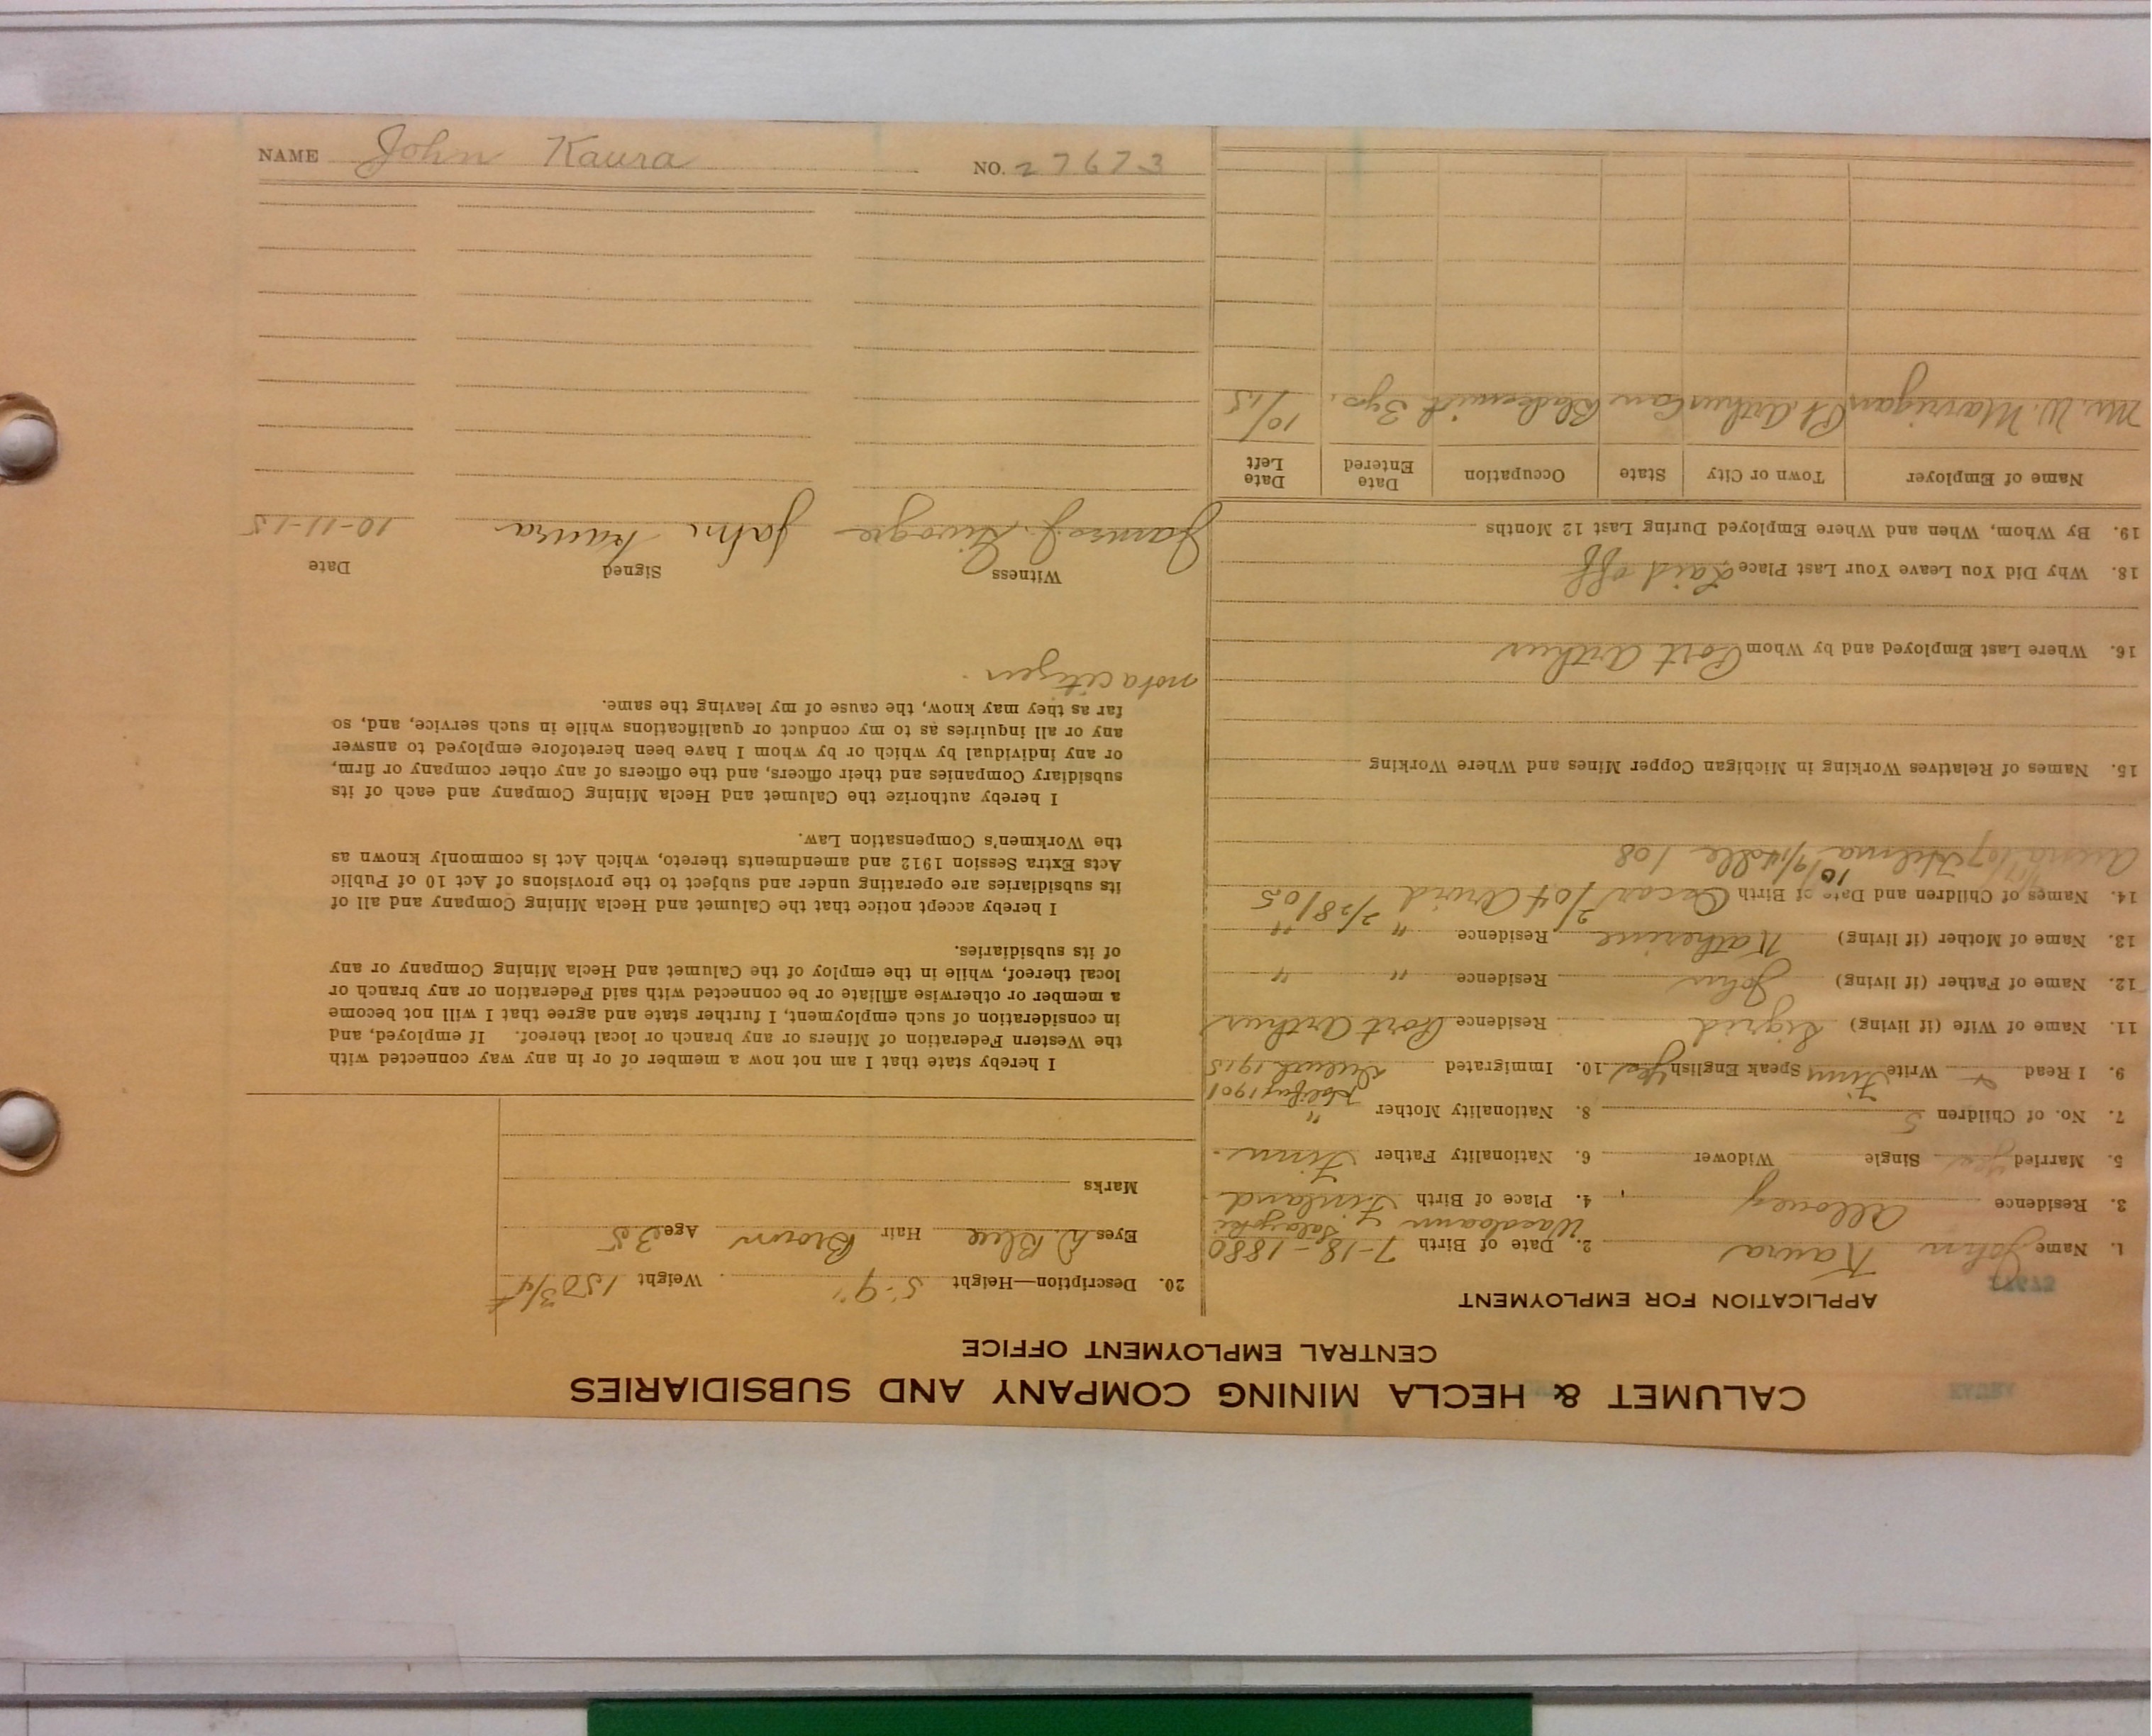 NAME John Kaura NO. 27673
CALUMET & HECLA MINING COMPANY AND SUBSIDIARIES
CENTRAL EMPLOYMENT OFFICE
APPLICATION FOR EMPLOYMENT
1. Name John Kaura 2. Date of Birth 7-18-1880
3. Residence Allouez 4. Place of Birth Finland
5. Married yes Single Widower 6. Nationality Father Finn
7. No. of Children 5 8. Nationality Mother "
9. I Read & Write Finn Speak English yes 10. Immigrated 1901
1915
11. Name of Wife (if living) Sigrid Residence Port Arthur
12. Name of Father (if living) John Residence " "
13. Name of Mother (if living) Katherine Residence " "
14. Names of Children and Date of Birth Oscar 2/04 Arvid 2/28/05
Hilma
15. Names of Relatives Working in Michigan Copper Mines and Where Working
16. Where Last Employed and by Whom Port Arthur
18. Why Did You Leave Your Last Place Laid off
19. By Whom, When and Where Employed During Last 12 Months
Name of Employer Town or City State Occupation Date Entered Date Left
Mr. W. Marrigan Pt Arthur Can Blacksmith 3 yrs. 10/15
20. Description—Height 5'-9" Weight 150 3/4
Eyes D. Blue Hair Brown Age 35
Marks
I hereby state that I am not now a member of or in any way connected with
the Western Federation of Miners or any branch or local thereof. If employed, and
in consideration of such employment, I further state and agree that I will not become
a member or otherwise affiliate or be connected with said Federation or any branch or
local thereof, while in the employ of the Calumet and Hecla Mining Company or any
of its subsidiaries.
I hereby accept notice that the Calumet and Hecla Mining Company and all of
its subsidiaries are operating under and subject to the provisions of Act 10 of Public
Acts Extra Session 1912 and amendments thereto, which Act is commonly known as
the Workmen's Compensation Law.
I hereby authorize the Calumet and Hecla Mining Company and each of its
subsidiary Companies and their officers, and the officers of any other company or firm,
or any individual by which or by whom I have been heretofore employed to answer
any or all inquiries as to my conduct or qualifications while in such service, and, so
far as they may know, the cause of my leaving the same.
not a citizen.
Witness Signed Date
James J. John Kaura 10-11-15